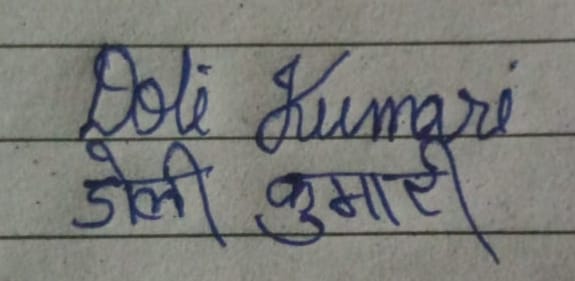 Doli Kumari
डोली कुमारी